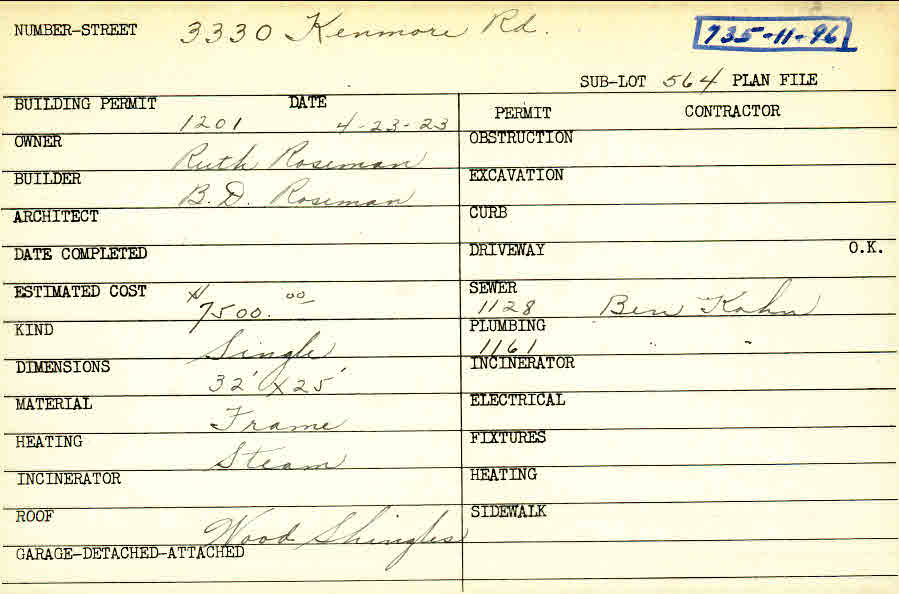 NUMBER-STREET 3330 Kenmore Rd. 735-11-96
SUB-LOT 564 PLAN FILE
BUILDING PERMIT DATE PERMIT CONTRACTOR
1201 4-23-23
OWNER OBSTRUCTION
Ruth Roseman
BUILDER EXCAVATION
B. D. Roseman
ARCHITECT CURB
DATE COMPLETED DRIVEWAY O.K.
ESTIMATED COST SEWER
7500.00 1128 Ben Kahn
KIND PLUMBING
Single 1161 " "
DIMENSIONS INCINERATOR
32' x 25'
MATERIAL ELECTRICAL
Frame
HEATING FIXTURES
Steam
INCINERATOR HEATING
ROOF SIDEWALK
Wood Shingles
GARAGE-DETACHED-ATTACHED